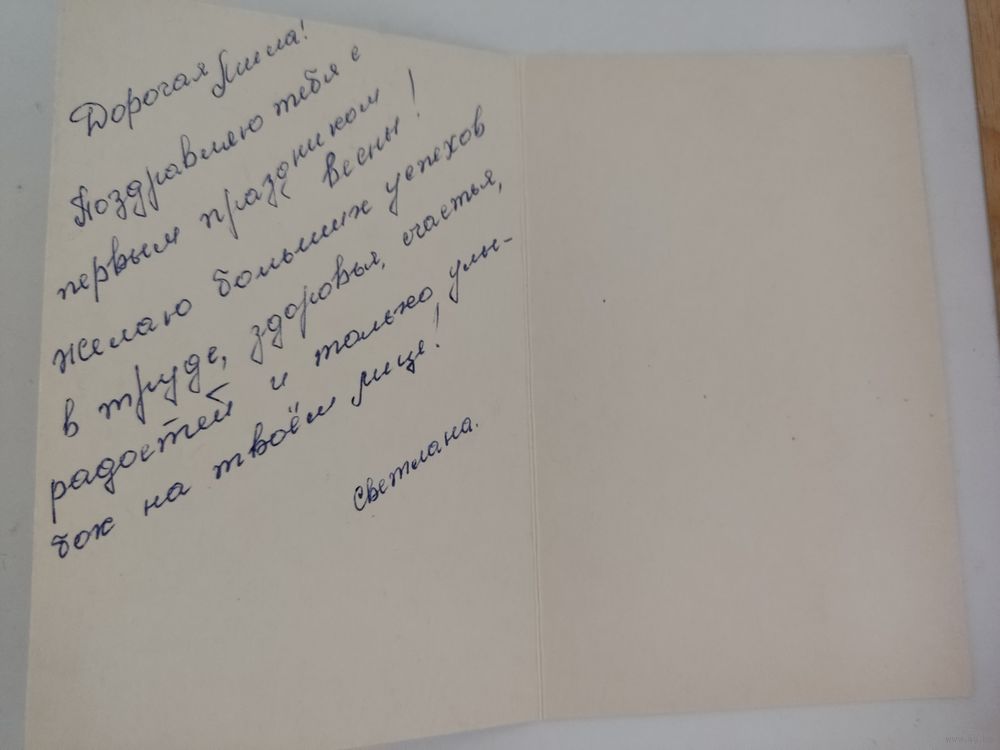 Дорогая Лила!
Поздравляю тебя с
первым праздником
весны!
желаю больших успехов
в труде, здоровья, счастья,
радостей и только улы-
бок на твоём лице!
Светлана.